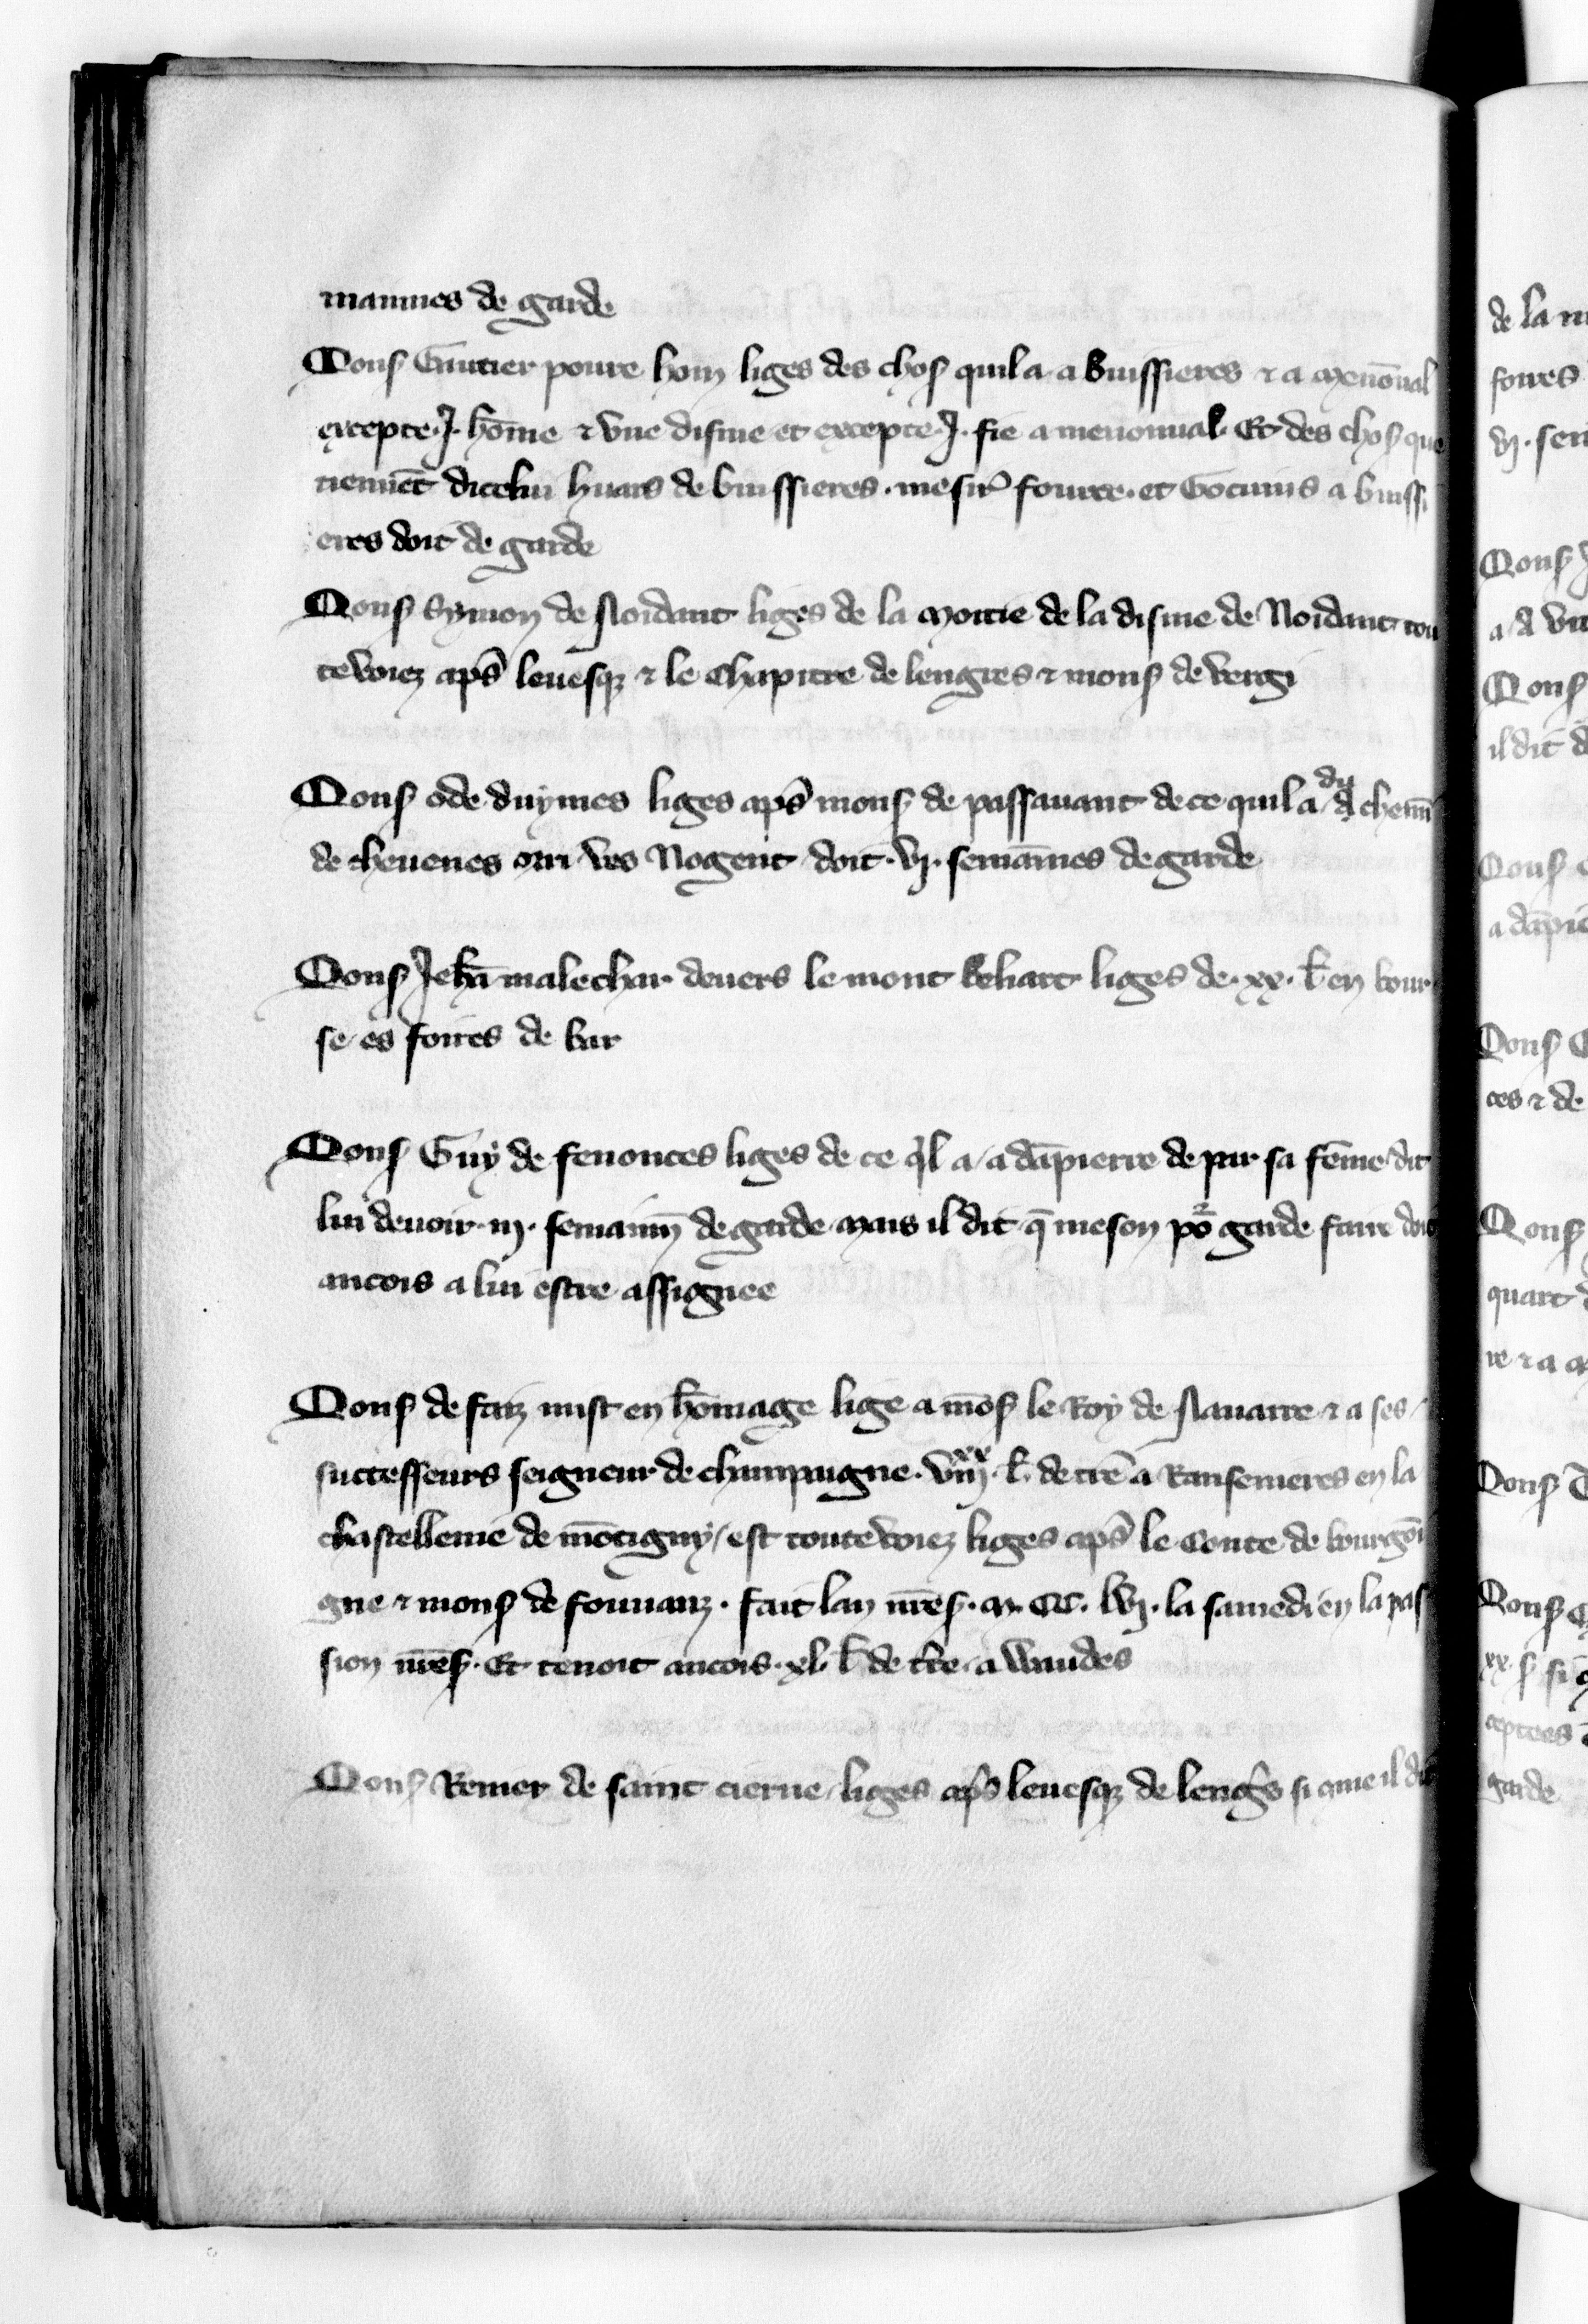 mainnes de garde
Mons Gautier poure hom liges des chos quil a a Buissieres & a menōual
excepte .J. hōme & vne disme et excepte .J. fie a menonual. Et des chos que
tiennēt dicelui huars de buissieres . mesir fourre . et Gocuins a buissi
eres doit de garde
Mons Symon de Noidant liges de la moitie de la disme de Noidant tou
tevoiez aps leuesqz & le Chapitre de lengres & mons de vergi
Mons ode duymes liges aps mons de passauant de ce quil a du chemī
de cheuenes vers Nogent doit .vj. semaīnes de garde
Mons Jehā malechar deuers le mont behart liges de .xx. l en bour
se es foires de bar
Mons Guy de fenonces liges de ce ql a a dāpierre de par sa fēme dit
lui deuoir .iij. semainn de garde mais il dit q̄ meson por garde faire doit
ancois a lui estre assignee
Mons de faiz mist en hōmage lige a mōs le Roy de Nauarre & a ses
successeurs seigneur de champaigne . viijxx . l. de tre a Ransenieres en la
chastellenie de mōtigny / est toutevoiez liges aps le Conte de bourgōi
gne & mons de fouuanz . fait lan nres . M. CC. lvj. la samedi en la pas
sion nres . Et tenoit ancois .xl. l de tre a Waudes
Mons Renier de saint cierue liges aps leuesqz de lengs si cme il dit
de la m
foires
vj. sem
Mons
a A
Mons
il dit
Mons
a dāpie
Mons
ces & de
Mons
quart
re & a
Mons
Mons
xx. s si
ceptees
garde